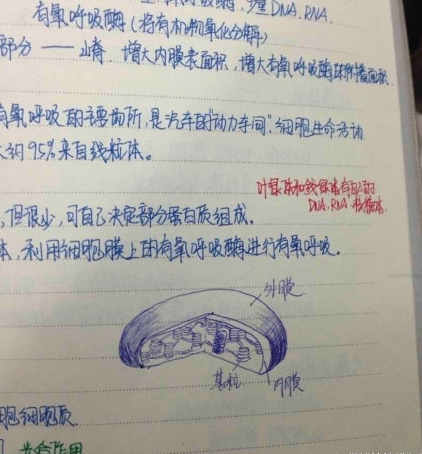 DNA、RNA.
有氧呼吸酶(将有机物氧化分解)
部分——嵴. 增大内膜表面积,增大有氧呼吸酶附着面积.
有氧呼吸的主要场所,是汽车的"动力车间".细胞生命活动
大约95%来自线粒体。
叶绿体和线粒体有自己的
DNA、RNA 核糖体.
,但很少,可自己决定部分蛋白质组成。
体,利用细胞膜上的有氧呼吸酶进行有氧呼吸。
外膜
基粒
内膜
胞细胞质
光合作用